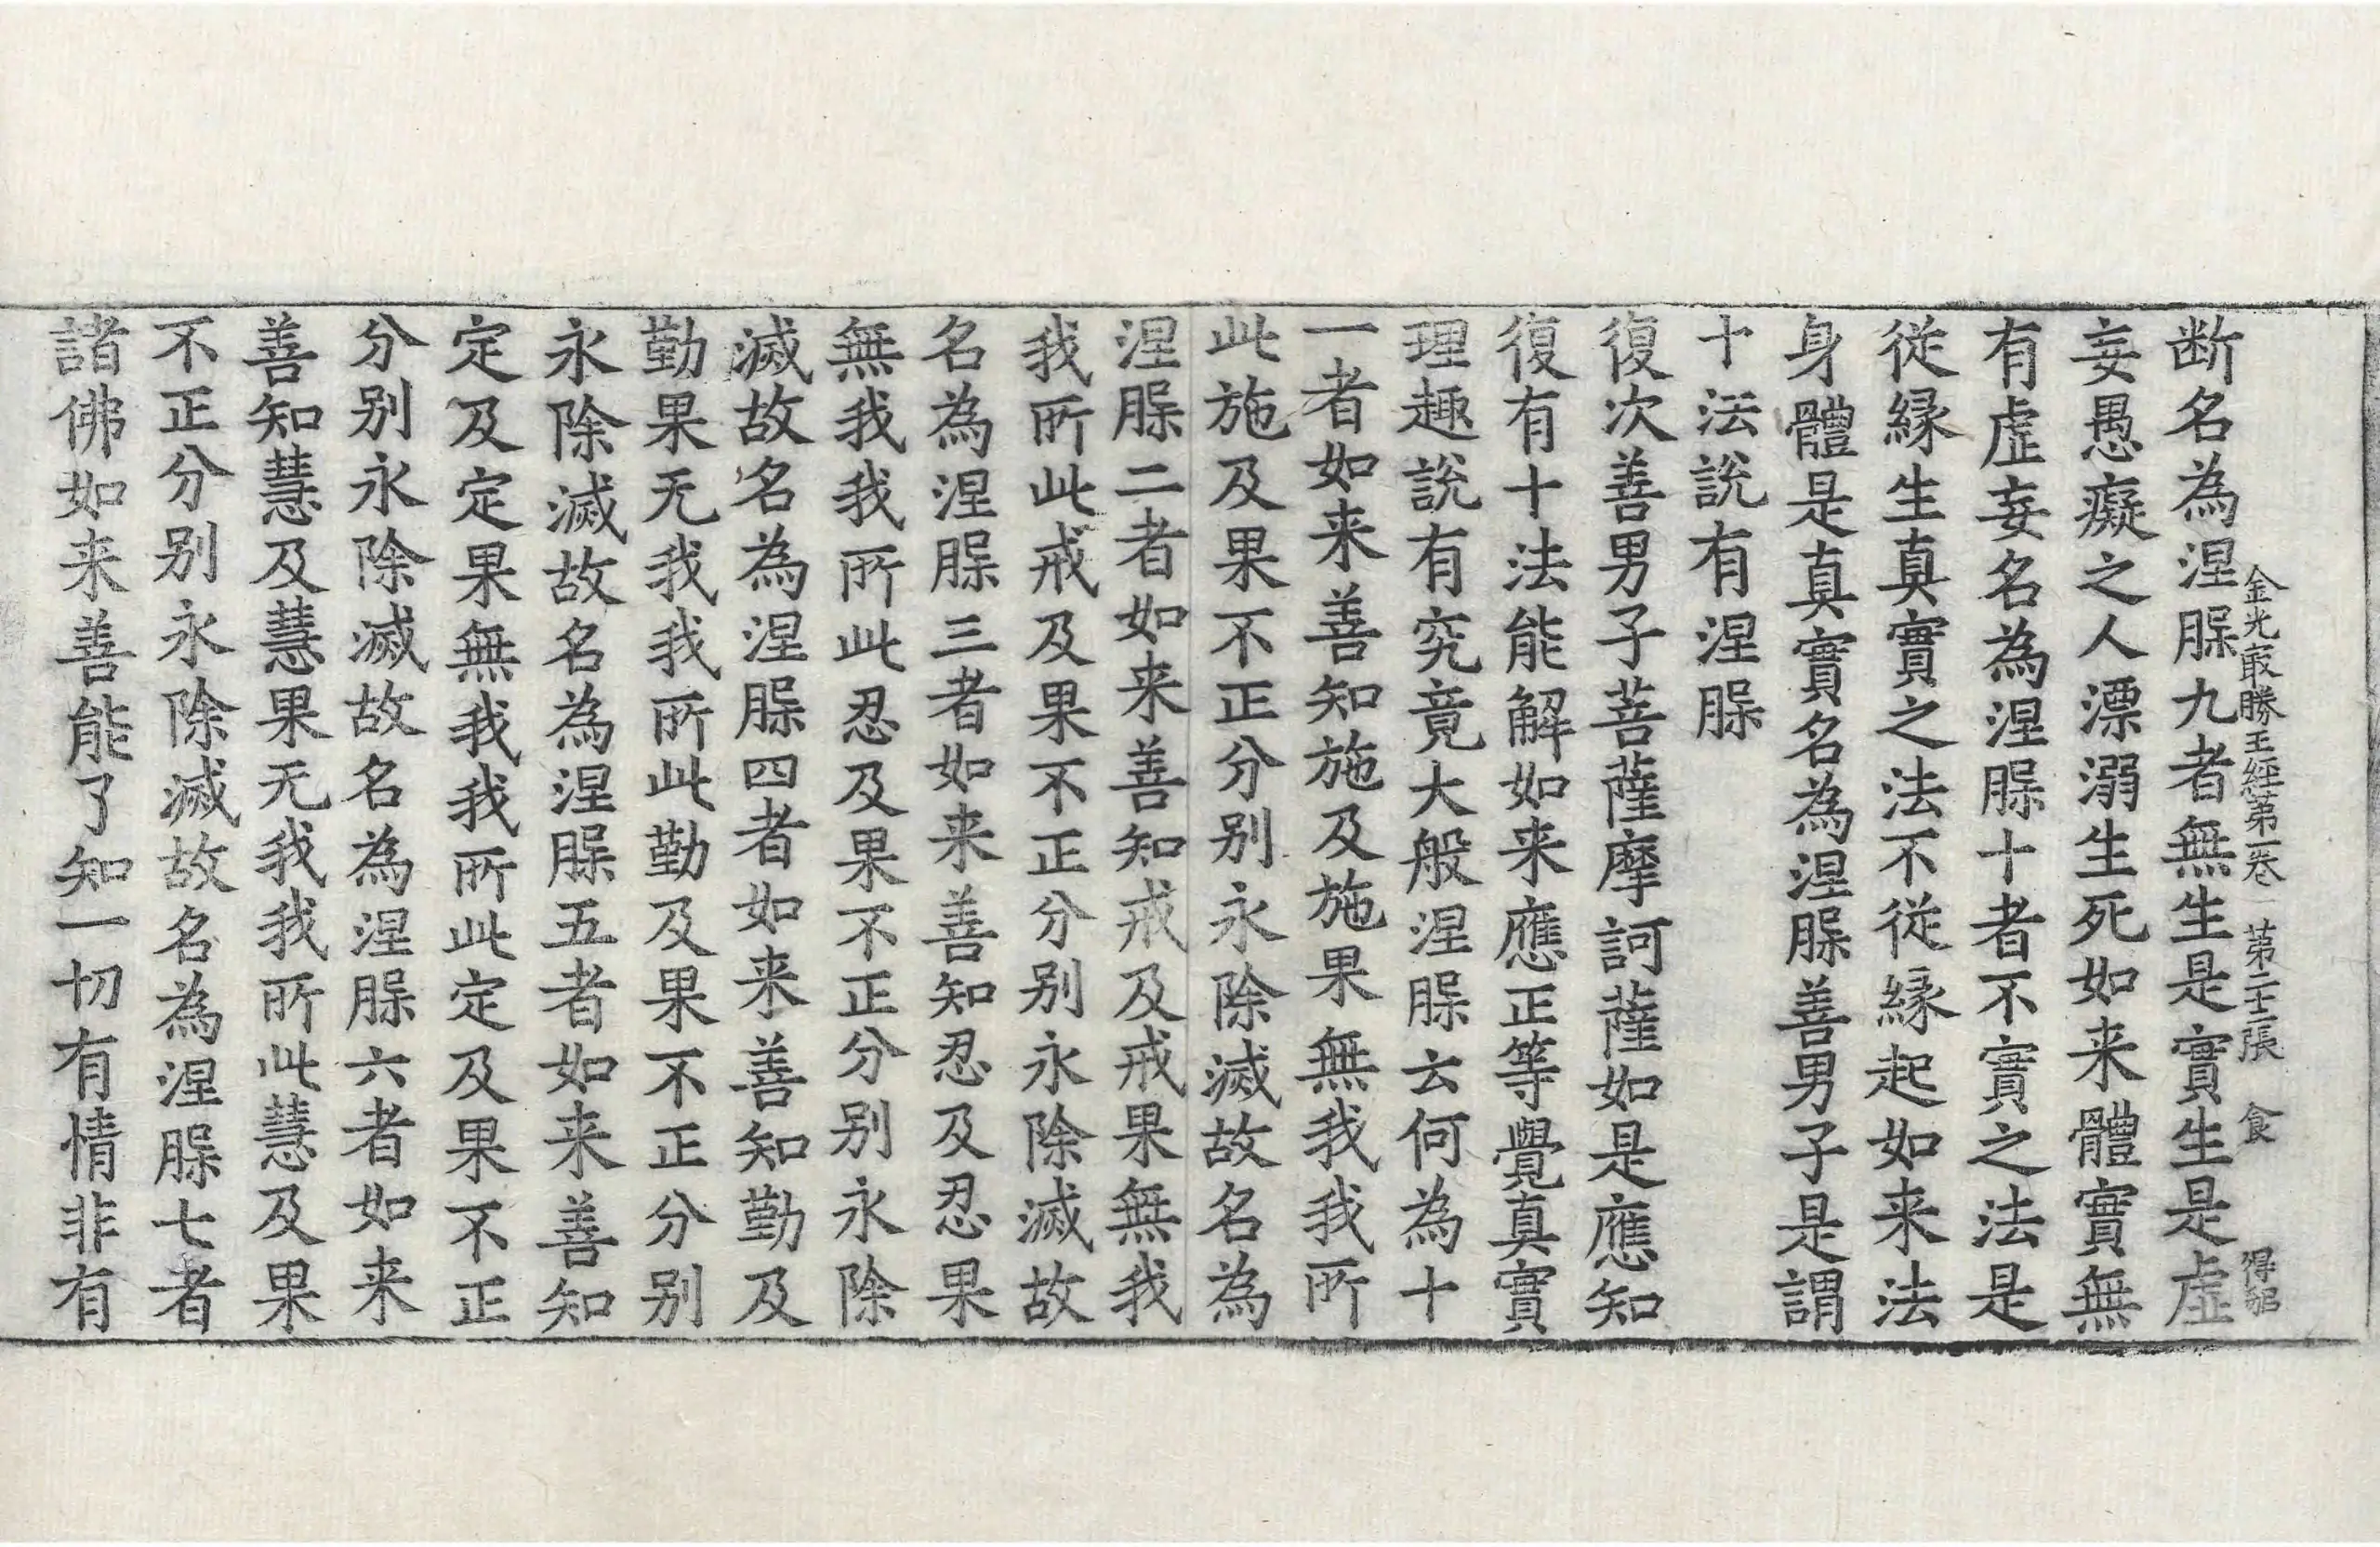 金光㝡勝王経第一卷　第二十張　食　得貂
断名為涅槃九者無生是實生是虛
妄愚癡之人漂溺生死如来體實無
有虛妄名為涅槃十者不實之法是
従緣生真實之法不従緣起如来法
身體是真實名為涅槃善男子是謂
十法說有涅槃
復次善男子菩薩摩訶薩如是應知
復有十法能解如来應正等覺真實
理趣說有究竟大般涅槃云何為十
一者如来善知施及施果無我我所
此施及果不正分别永除滅故名為
涅槃二者如来善知戒及戒果無我
我所此戒及果不正分别永除滅故
名為涅槃三者如来善知忍及忍果
無我我所此忍及果不正分别永除
滅故名為涅槃四者如来善知勤及
勤果无我我所此勤及果不正分别
永除滅故名為涅槃五者如来善知
定及定果無我我所此定及果不正
分别永除滅故名為涅槃六者如来
善知慧及慧果无我我所此慧及果
不正分别永除滅故名為涅槃七者
諸佛如来善能了知一切有情非有